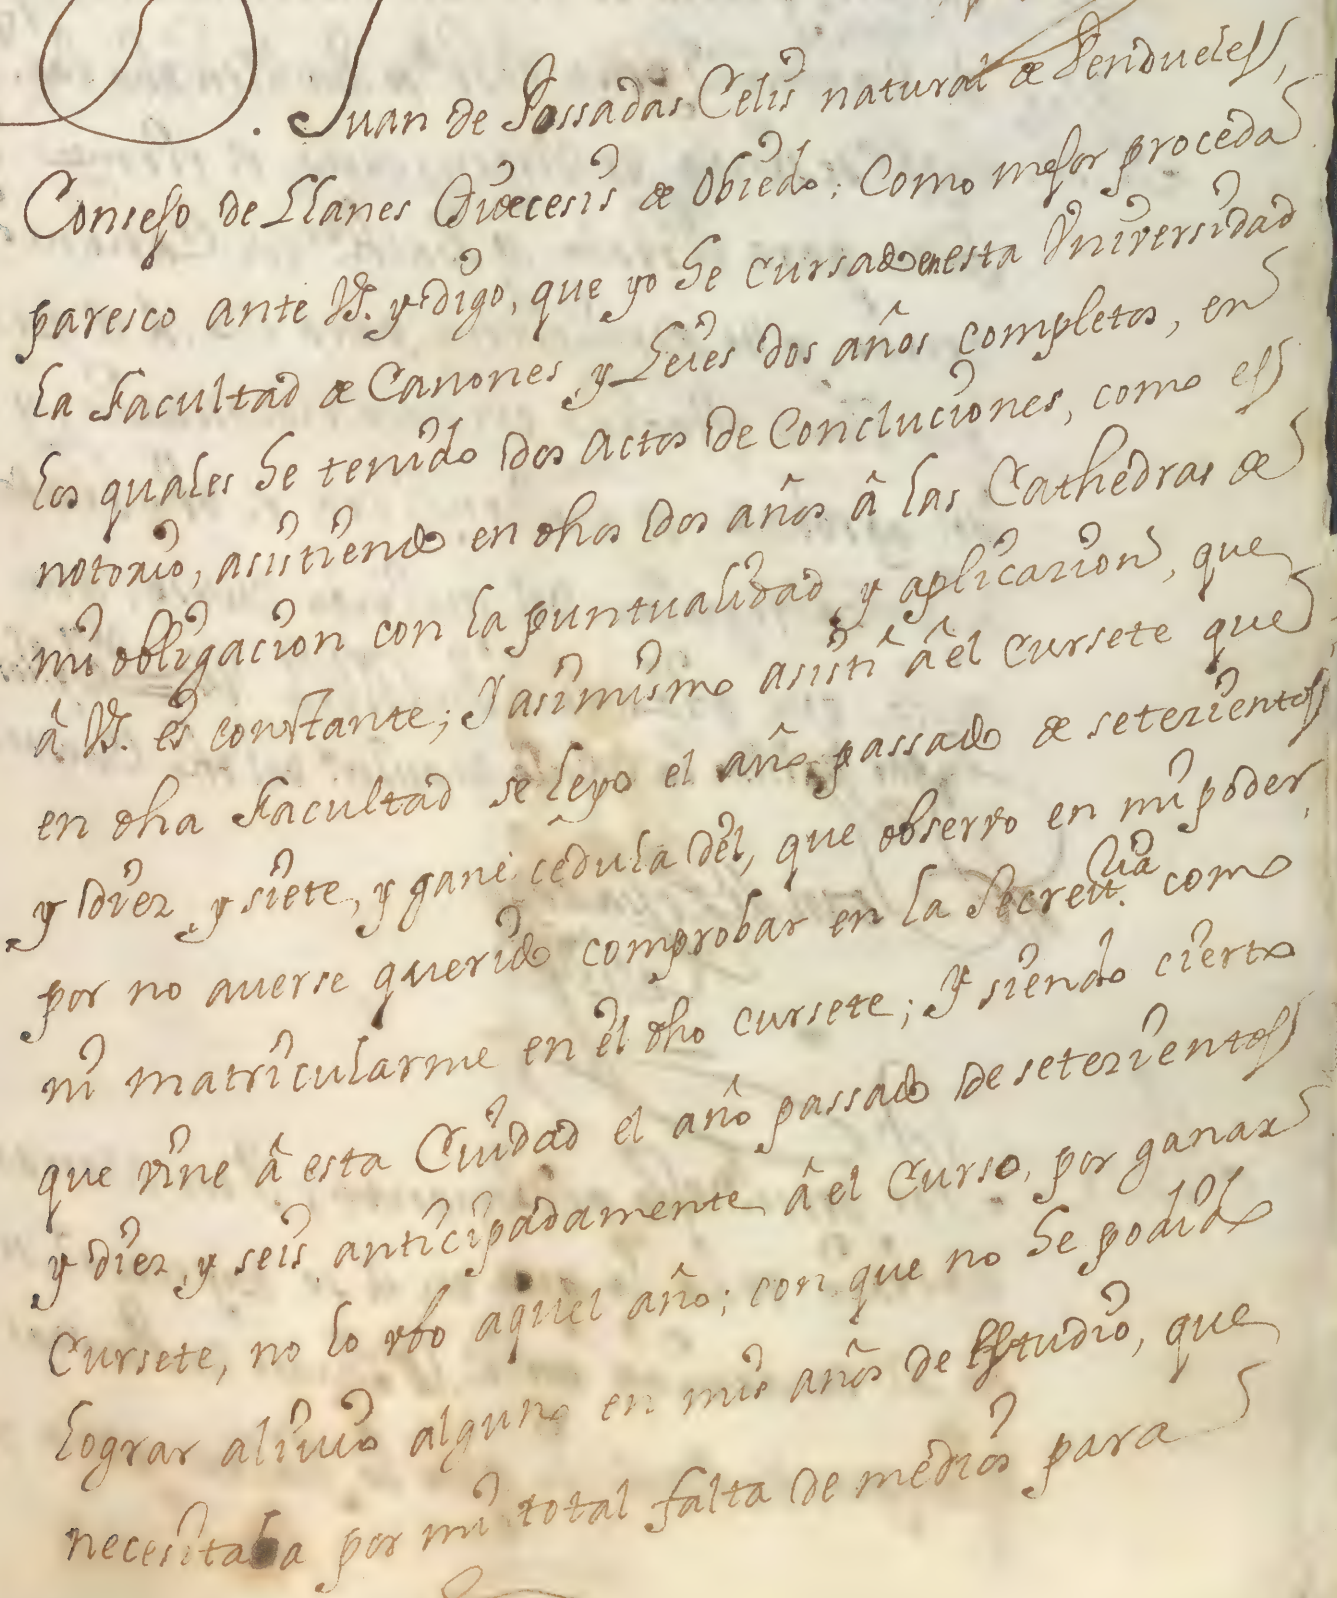 D. Juan de Possadas Celis natural de Pendueles,
Consejo de Llanes Diœcesis de Obiedo; Como mejor proceda
paresco ante VS. y digo, que yo he cursado en esta Vniversidad
la Facultad de Canones, y Leies dos años completos, en
los quales he tenido dos actos de Concluciones, como es
notorio, asistiendo en dhos dos años â las Cathedras de
mi obligacion con la puntualidad, y aplicazion, que
â VS. es constante; Y asimismo asistî â el cursete que
en dha Facultad se leyo el año passado de setezientos
y diez, y siete, y gané cêdula dêl, que observo en mi poder,
por no averse querido comprobar en la Secret.ria como
ni matricularme en êl dho cursete; Y siendo cierto
que vine â esta Ciudad el año passado de setezientos
y diez, y seis anticipadamente â el Curso, por ganar
Cursete, no lo vbo aquel año; con que no he podido
lograr alivio alguno en mis años de Estudio, que
necesitaba por mi total falta de mêdios para